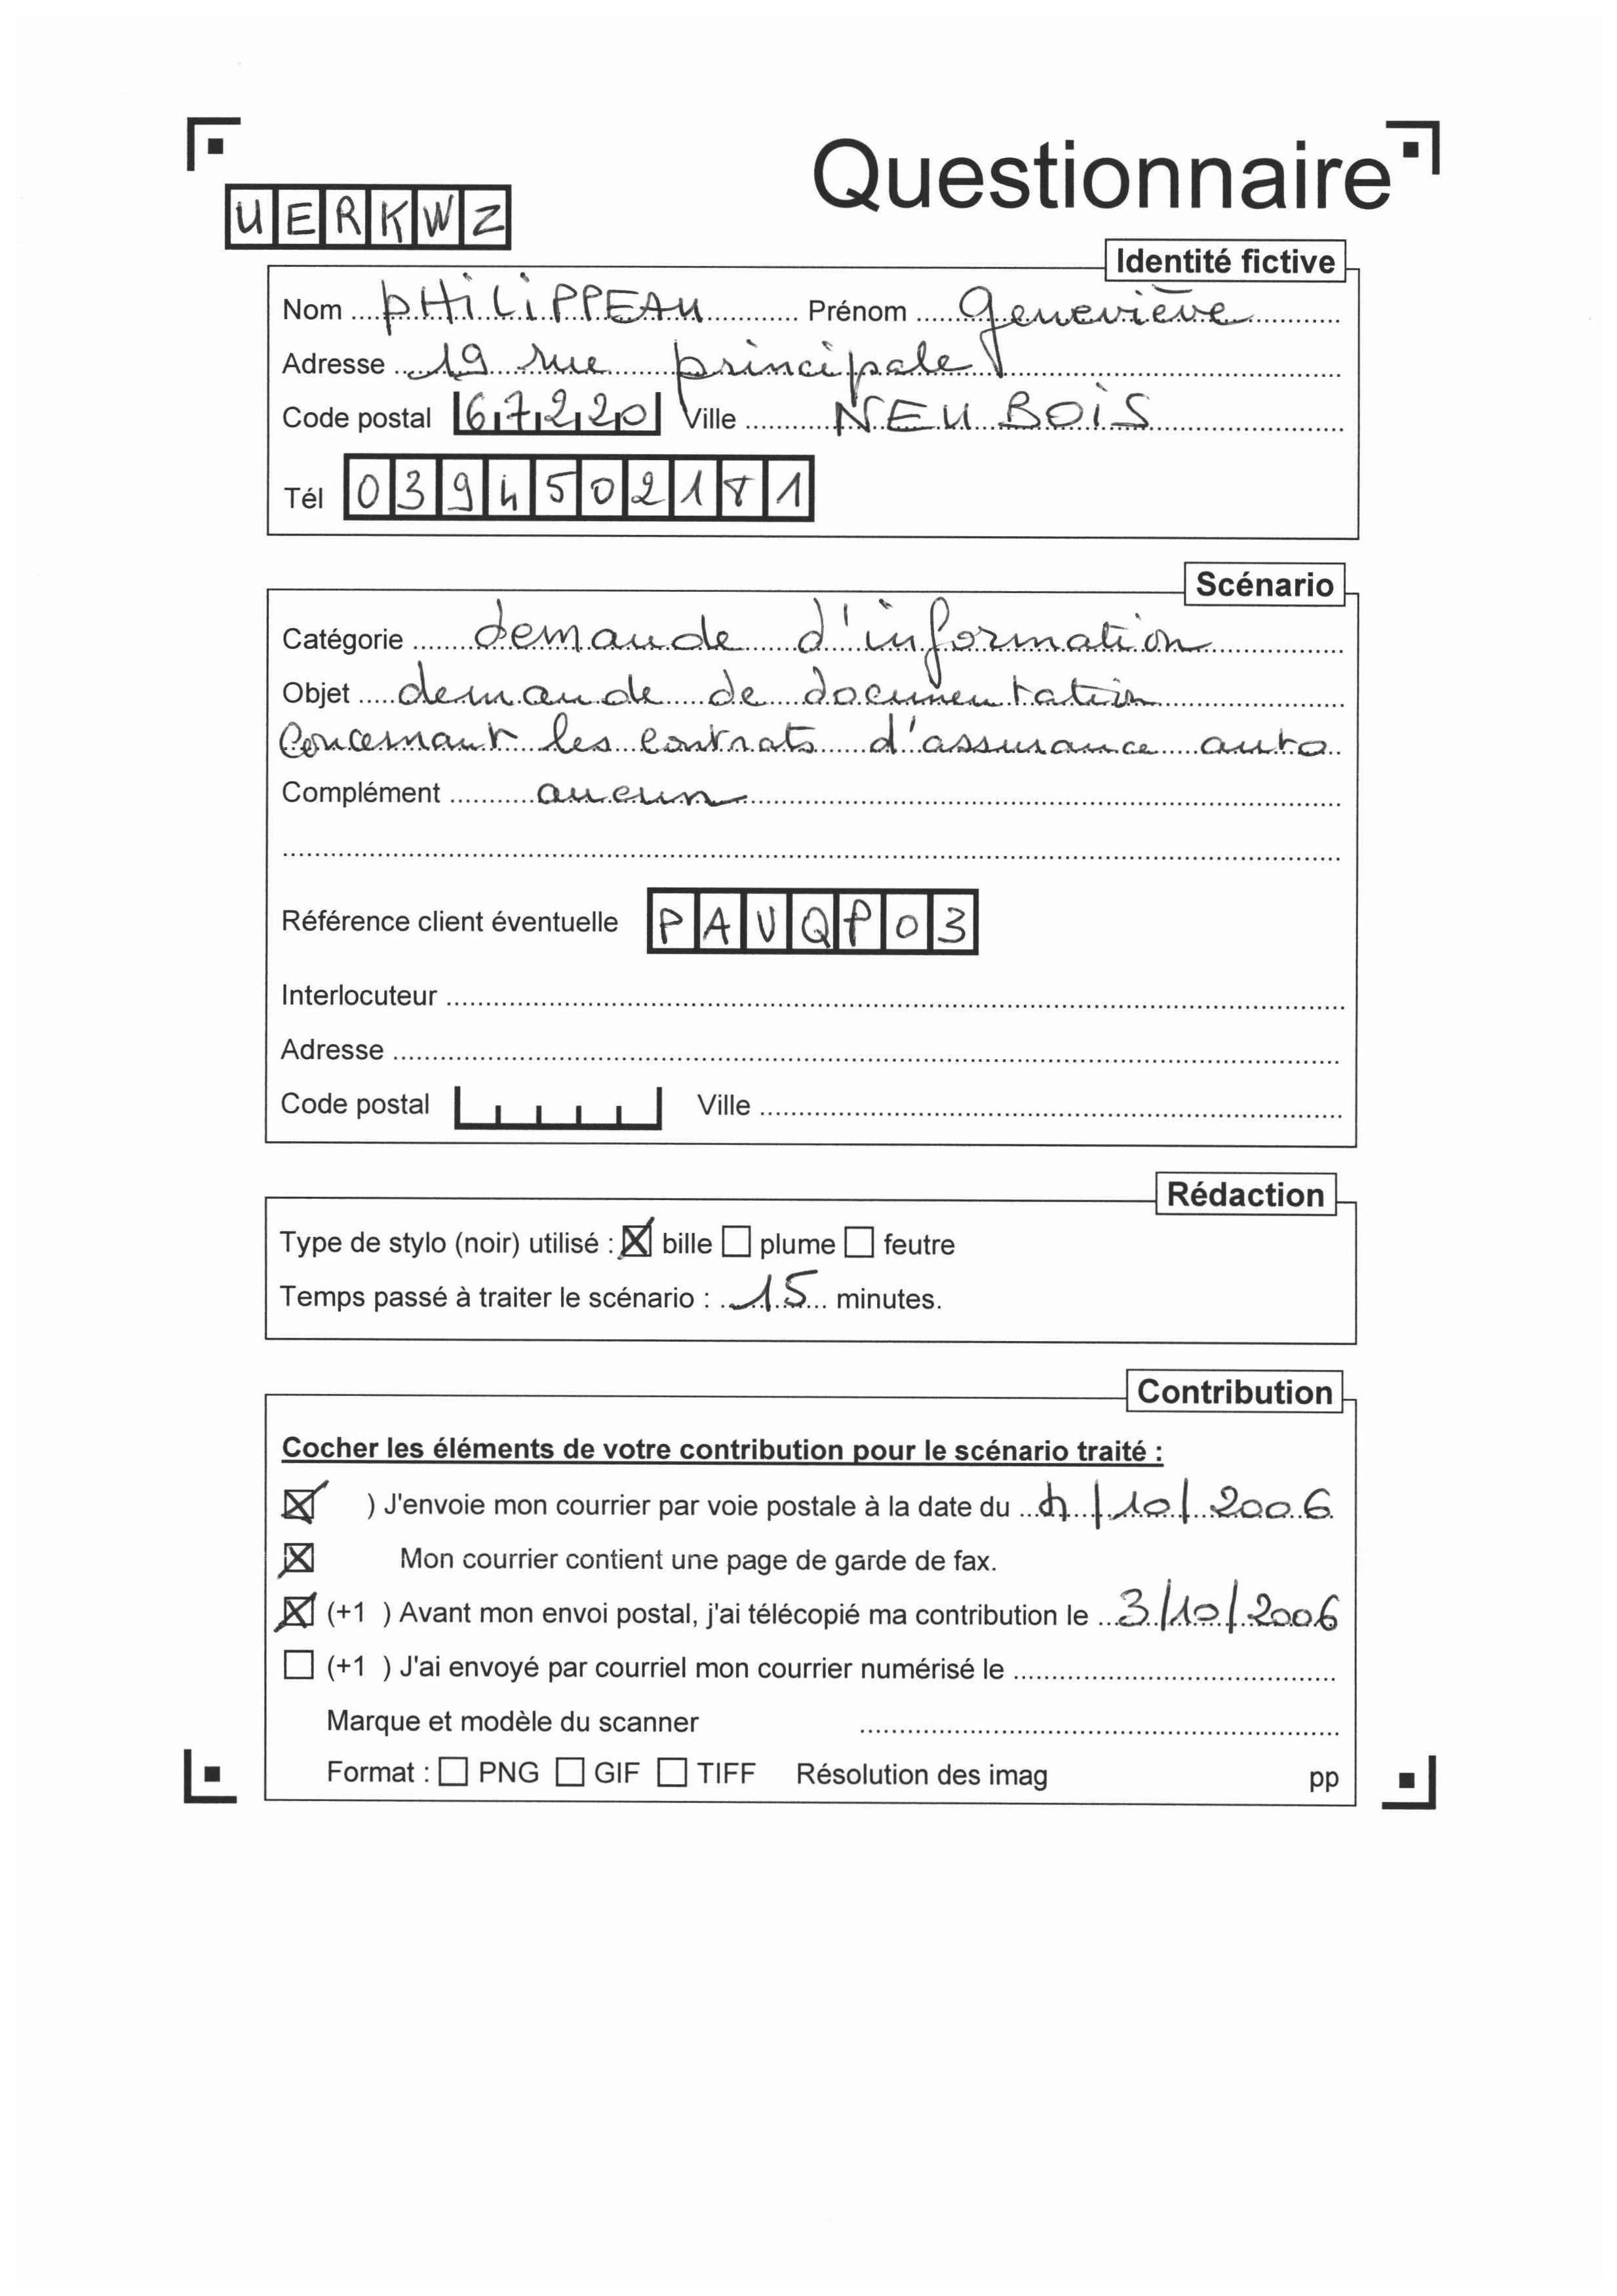 Questionnaire
UERKWZ
Identité fictive
Nom pHiLiPPEAU Prénom Geneviève
Adresse 19 rue principale
Code postal 67220 Ville NEUBOiS
Tél 0394502181
Scénario
Catégorie demande d'information
Objet demande de documentation
Concernant les contrats d'assurance auto
Complément aucun
Référence client éventuelle PAVQP03
Interlocuteur
Adresse
Code postal Ville
Rédaction
Type de stylo (noir) utilisé : bille plume feutre
Temps passé à traiter le scénario : 15 minutes.
Contribution
Cocher les éléments de votre contribution pour le scénario traité :
) J'envoie mon courrier par voie postale à la date du 4/10/2006
Mon courrier contient une page de garde de fax.
(+1 ) Avant mon envoi postal, j'ai télécopié ma contribution le 3/10/2006
(+1 ) J'ai envoyé par courriel mon courrier numérisé le
Marque et modèle du scanner
Format : PNG GIF TIFF Résolution des imag pp